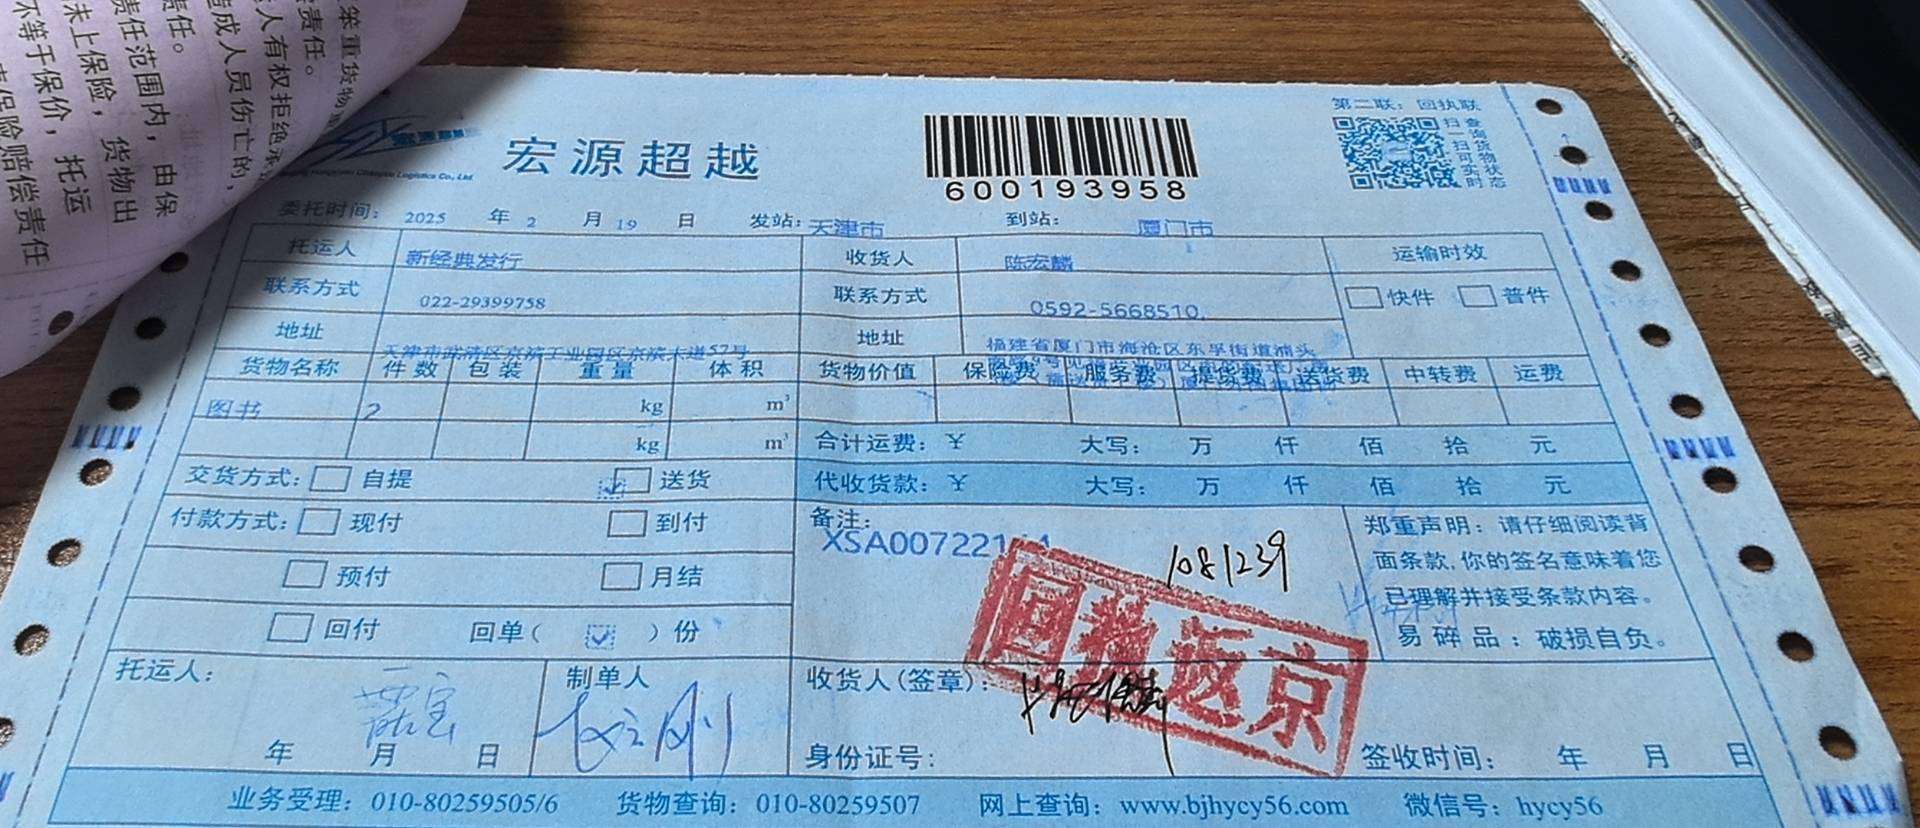 笨重货物
责任。
人有权拒绝承
造成人员伤亡的,
责任。
责任范围内,由保
未上保险,货物出
不等于保价,托运
保险赔偿责任
第二联:回执联
扫一扫可实时
查询货物状态
宏源超越
600193958
委托时间: 2025 年 2 月 19 日 发站: 天津市 到站: 厦门市
托运人 新经典发行 收货人 陈宏麟 运输时效
联系方式 022-29399758 联系方式 0592-5668510, 快件 普件
地址 天津市武清区京滨工业园区京滨大道57号 地址 福建省厦门市海沧区东孚街道浦头
货物名称 件数 包装 重量 体积 货物价值 保险费 服务费 提货费 送货费 中转费 运费
图书 2 kg m³
kg m³ 合计运费: ¥ 大写: 万 仟 佰 拾 元
交货方式: 自提 送货 代收货款: ¥ 大写: 万 仟 佰 拾 元
付款方式: 现付 到付 备注:
XSA00722144
1081239
预付 月结
回付 回单( ✓ )份
郑重声明:请仔细阅读背
面条款,你的签名意味着您
已理解并接受条款内容。
易碎品:破损自负。
回执返京
托运人: 制单人 收货人(签章):
年 月 日 身份证号: 签收时间: 年 月 日
业务受理: 010-80259505/6 货物查询: 010-80259507 网上查询: www.bjhycy56.com 微信号: hycy56